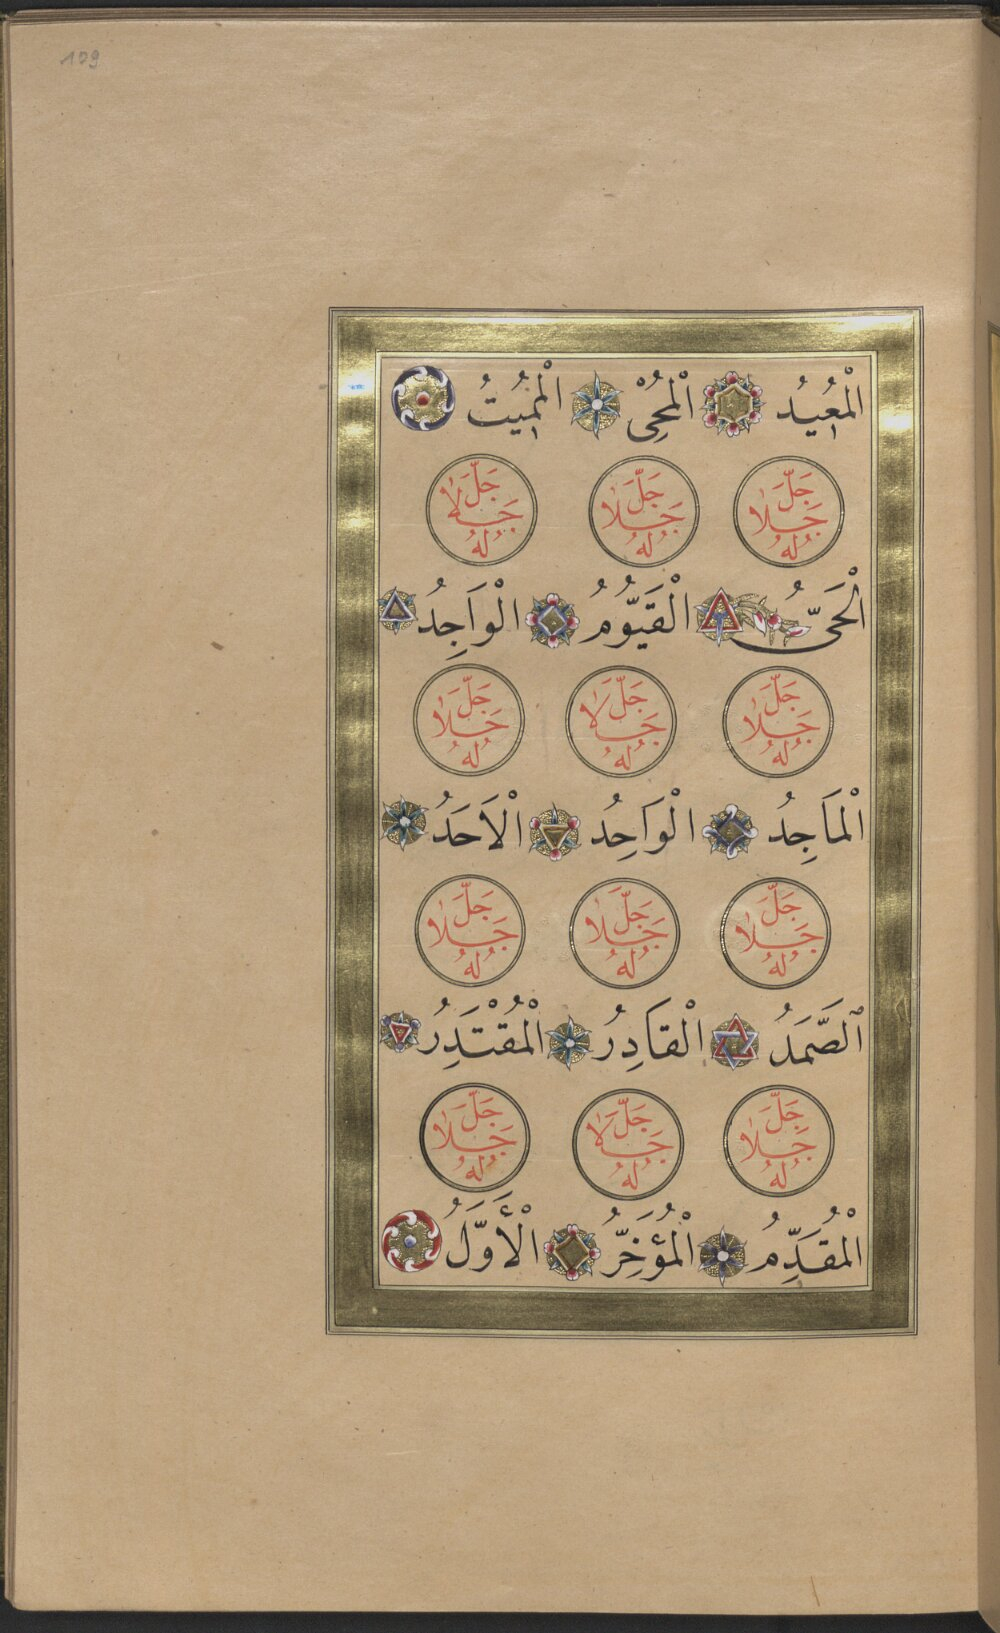 109
الْمُعِيدُ الْمُحْيِى الْمُمِيتُ
جَلَّ جَلَالُهُ جَلَّ جَلَالُهُ جَلَّ جَلَالُهُ
الْحَىُّ الْقَيُّومُ الْوَاجِدُ
جَلَّ جَلَالُهُ جَلَّ جَلَالُهُ جَلَّ جَلَالُهُ
الْمَاجِدُ الْوَاحِدُ الْاَحَدُ
جَلَّ جَلَالُهُ جَلَّ جَلَالُهُ جَلَّ جَلَالُهُ
اَلصَّمَدُ الْقَادِرُ الْمُقْتَدِرُ
جَلَّ جَلَالُهُ جَلَّ جَلَالُهُ جَلَّ جَلَالُهُ
الْمُقَدِّمُ الْمُؤَخِّرُ الْأَوَّلُ